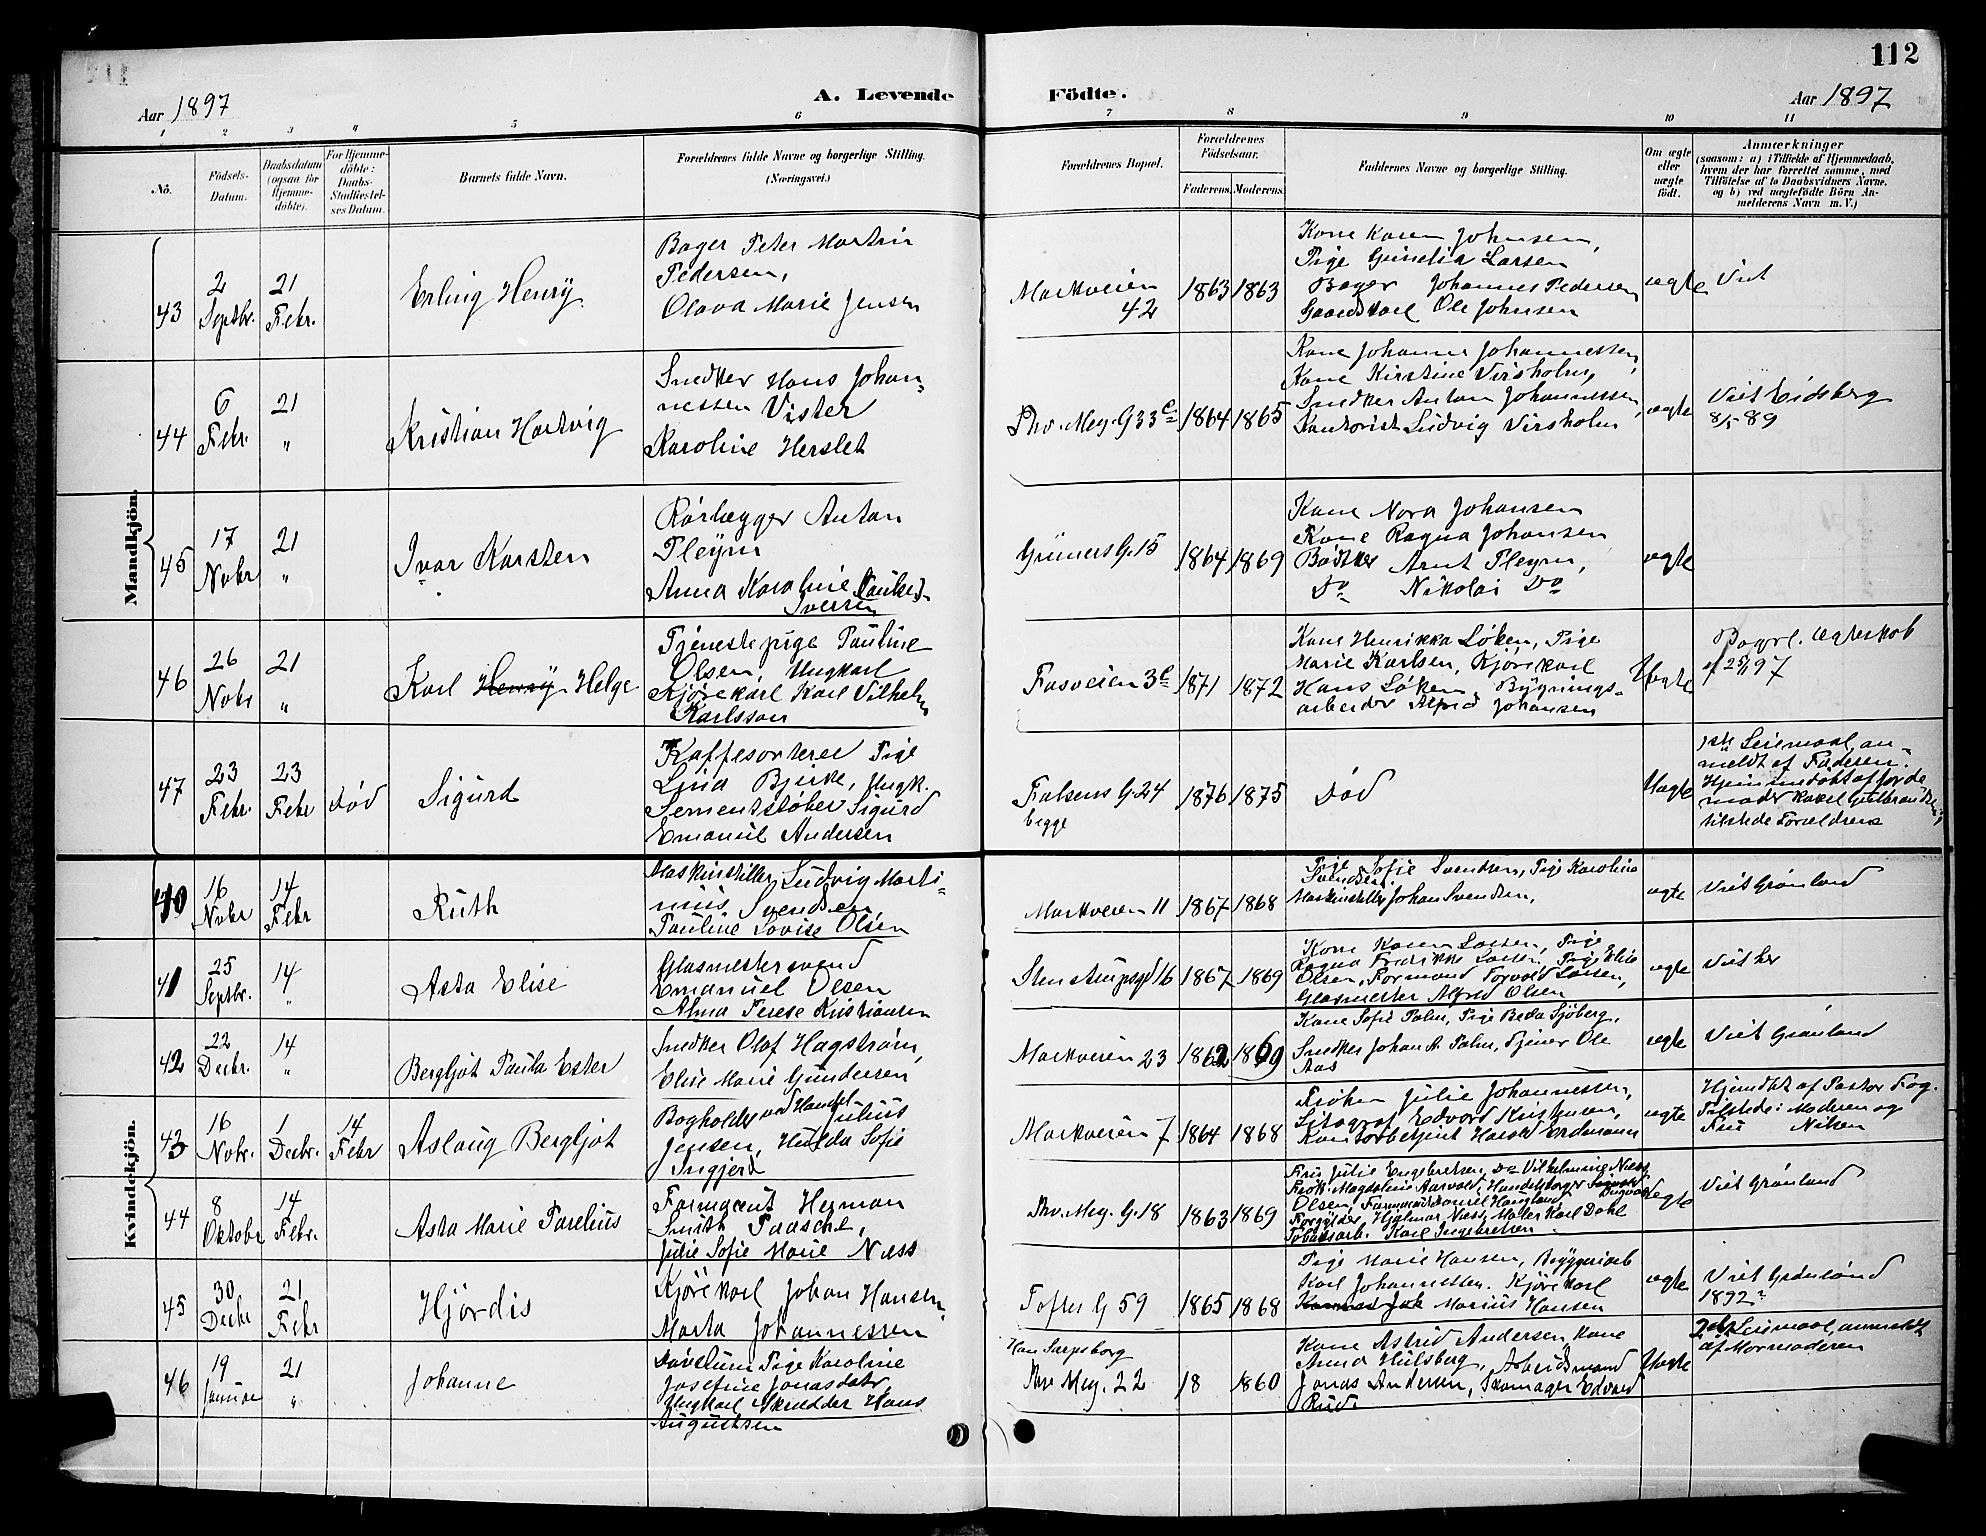 112
Aar 1897
A. Levende
Födte.
Aar 1897
1 2 3 4 5 6 7 8 9 10 11
Nô.
Födsels-
Datum.
Daabsdatum
(ogsaa for
Hjemme-
döbte).
For Hjemme-
döbte:
Daabs-
Stadfæstel-
ses Datum.
Barnets fulde Navn.
Forældrenes fulde Navne og borgerlige Stilling.
(Næringsvei.)
Forældrenes Bopæl.
Forældrenes
Födselsaar.
Faderens. Moderens.
Faddernes Navne og borgerlige Stilling.
Om ægte
eller
uægte
födt.
Anmærkninger
(saasom: a) i Tilfælde af Hjemmedaab,
hvem der har forrettet samme, med
Tilföielse af to Daabsvidners Navne,
og b) ved uægtefödte Börn An-
melderens Navn m. V.)
Mandkjön.
43
2
Septbr.
21
Febr.
Erling Henry
Bager Peter Martin
Pedersen,
Olava Marie Jensen
Markveien
42
1863 1863
Kone Karen Johnsen,
Pige Gunelia Larsen
Bager Johannes Pedersen
Gaardskarl Ole Johnsen
ægte
Viet
44
6
Febr.
21
"
Kristian Hartvig
Snedker Hans Johan-
nessen Vister
Karoline Herslet
Thv. Mey. G 33 c
1864 1865
Kone Johanne Johannessen,
Kone Kirstine Virsholm,
Snedker Anton Johannessen,
Kontorist Ludvig Virsholm
ægte
Viet Eidsberg
8/5 89
45
17
Nobr
21
"
Ivar Karsten
Rørlægger Anton
Pleym
Anna Karoline
Iversen
Grüners G. 15
1864 1869
Kone Nora Johansen
Kone Ragna Johansen
Bödker Arnt Pleym,
Do Nikolai Do
ægte
46
26
Nobr
21
"
Karl Henry Helge
Tjenestepige Pauline
Olsen, Ungkarl
Kjørekarl Karl Vilhelm
Karlsson
Fosveien 3c
1871 1872
Kone Henrikka Løken, Pige
Marie Karlsen, Kjörekarl
Hans Løken, Bygnings-
arbeider Alfred Johansen
Uegte
Ægteskab
97
47
23
Febr.
23
Febr
Död
Sigurd
Kaffesorterer Pige
Lina Bjerke, Ungk.
Sementstøber Sigurd
Emanuel Andersen
Falsens G. 24
begge
1876 1875
Död
Uægte
1ste Leiermaal, an-
meldt af Faderen.
Hjemmedöbt af jorde-
moder
tilstede Forældrene
Kvindekjön.
40
16
Nobr
14
Febr
Ruth
Maskinstiller Ludvig Marti-
nius Svendsen
Pauline Lovise Olsen
Markveien 11
1867 1868
Pige Sofie Svendsen, Pige Karoline
Svendsen
Maskinstiller Johan Svendsen,
ægte
Viet Grønland
41
25
Septbr.
14
"
Asta Elise
Glasmestersvend
Emanuel Olsen
Alma Terese Kristiansen
Stenstrupsgd 16
1867 1869
Kone Karen Larsen, Pige
Ragna Fredrikke Larsen, Pige Elise
Olsen, Formand Torvald Larsen,
Glasmester Alfred Olsen
ægte
Viet her
42
22
Decbr.
14
"
Bergljot Paula Ester
Snedker Olof Hagström,
Elise Marie Gundersen
Markveien 23
1862 1869
Kone Sofie Palm, Pige Beda Sjöberg,
Snedker Johan A. Palm, Tjener Ole
Aas
ægte
Viet Grønland
43
16
Nobr.
1
Decbr.
14
Febr
Aslaug Bergljot
Bogholder ved Handel Julius
Jensen, Hulda Sofie
Ingjerd
Markveien 7
1864 1868
Frøken Julie Johannessen,
Litograf Edvard Kristensen,
Kontorbetjent Harald Erdmann
ægte
Hjemdøbt af Pastor Fog.
Tilstede: Moderen og
Fru Nilsen
44
8
Oktobr
14
Febr.
Asta Marie Parelius
Farmaceut Herman
Smith Paasche,
Julie Sofie Marie Næss
Thv. Mey. G. 18
1863 1869
Fru Julie Engebretsen, Do Vilhelmine Næss,
Frøk. Magdaline Aarvold, Handelsborger
Olsen, Farmaceut Haugland,
Forgylder Hjalmar Næss, Maler Karl Dahl
Tobaksarb. Karl Ingebretsen
ægte
Viet Grønland
45
30
Decbr
21
Febr
Hjördis
Kjörekarl Johan Hansen,
Marta Johannessen
Toftes G 59
1865 1868
Pige Marie Hansen, Bryggeriarb
Karl Johannessen. Kjörekarl
Marius Hansen
ægte
Viet Grønland
1892?
46
19
Januar
21
"
Johanne
Døvstum Pige Karoline
Josefine Jonasdatr
Ungkarl Skrædder Hans
Augustsen
Han Sarpsborg
Thv Mey. 22
18 1860
Kone Astrid Andersen, Kone
Anna Hulsberg, Arbeidsmand
Jonas Andersen, Skomager Edvard
Rud.
Uægte
2det Leiermaal, anmeldt
af Mormoderen